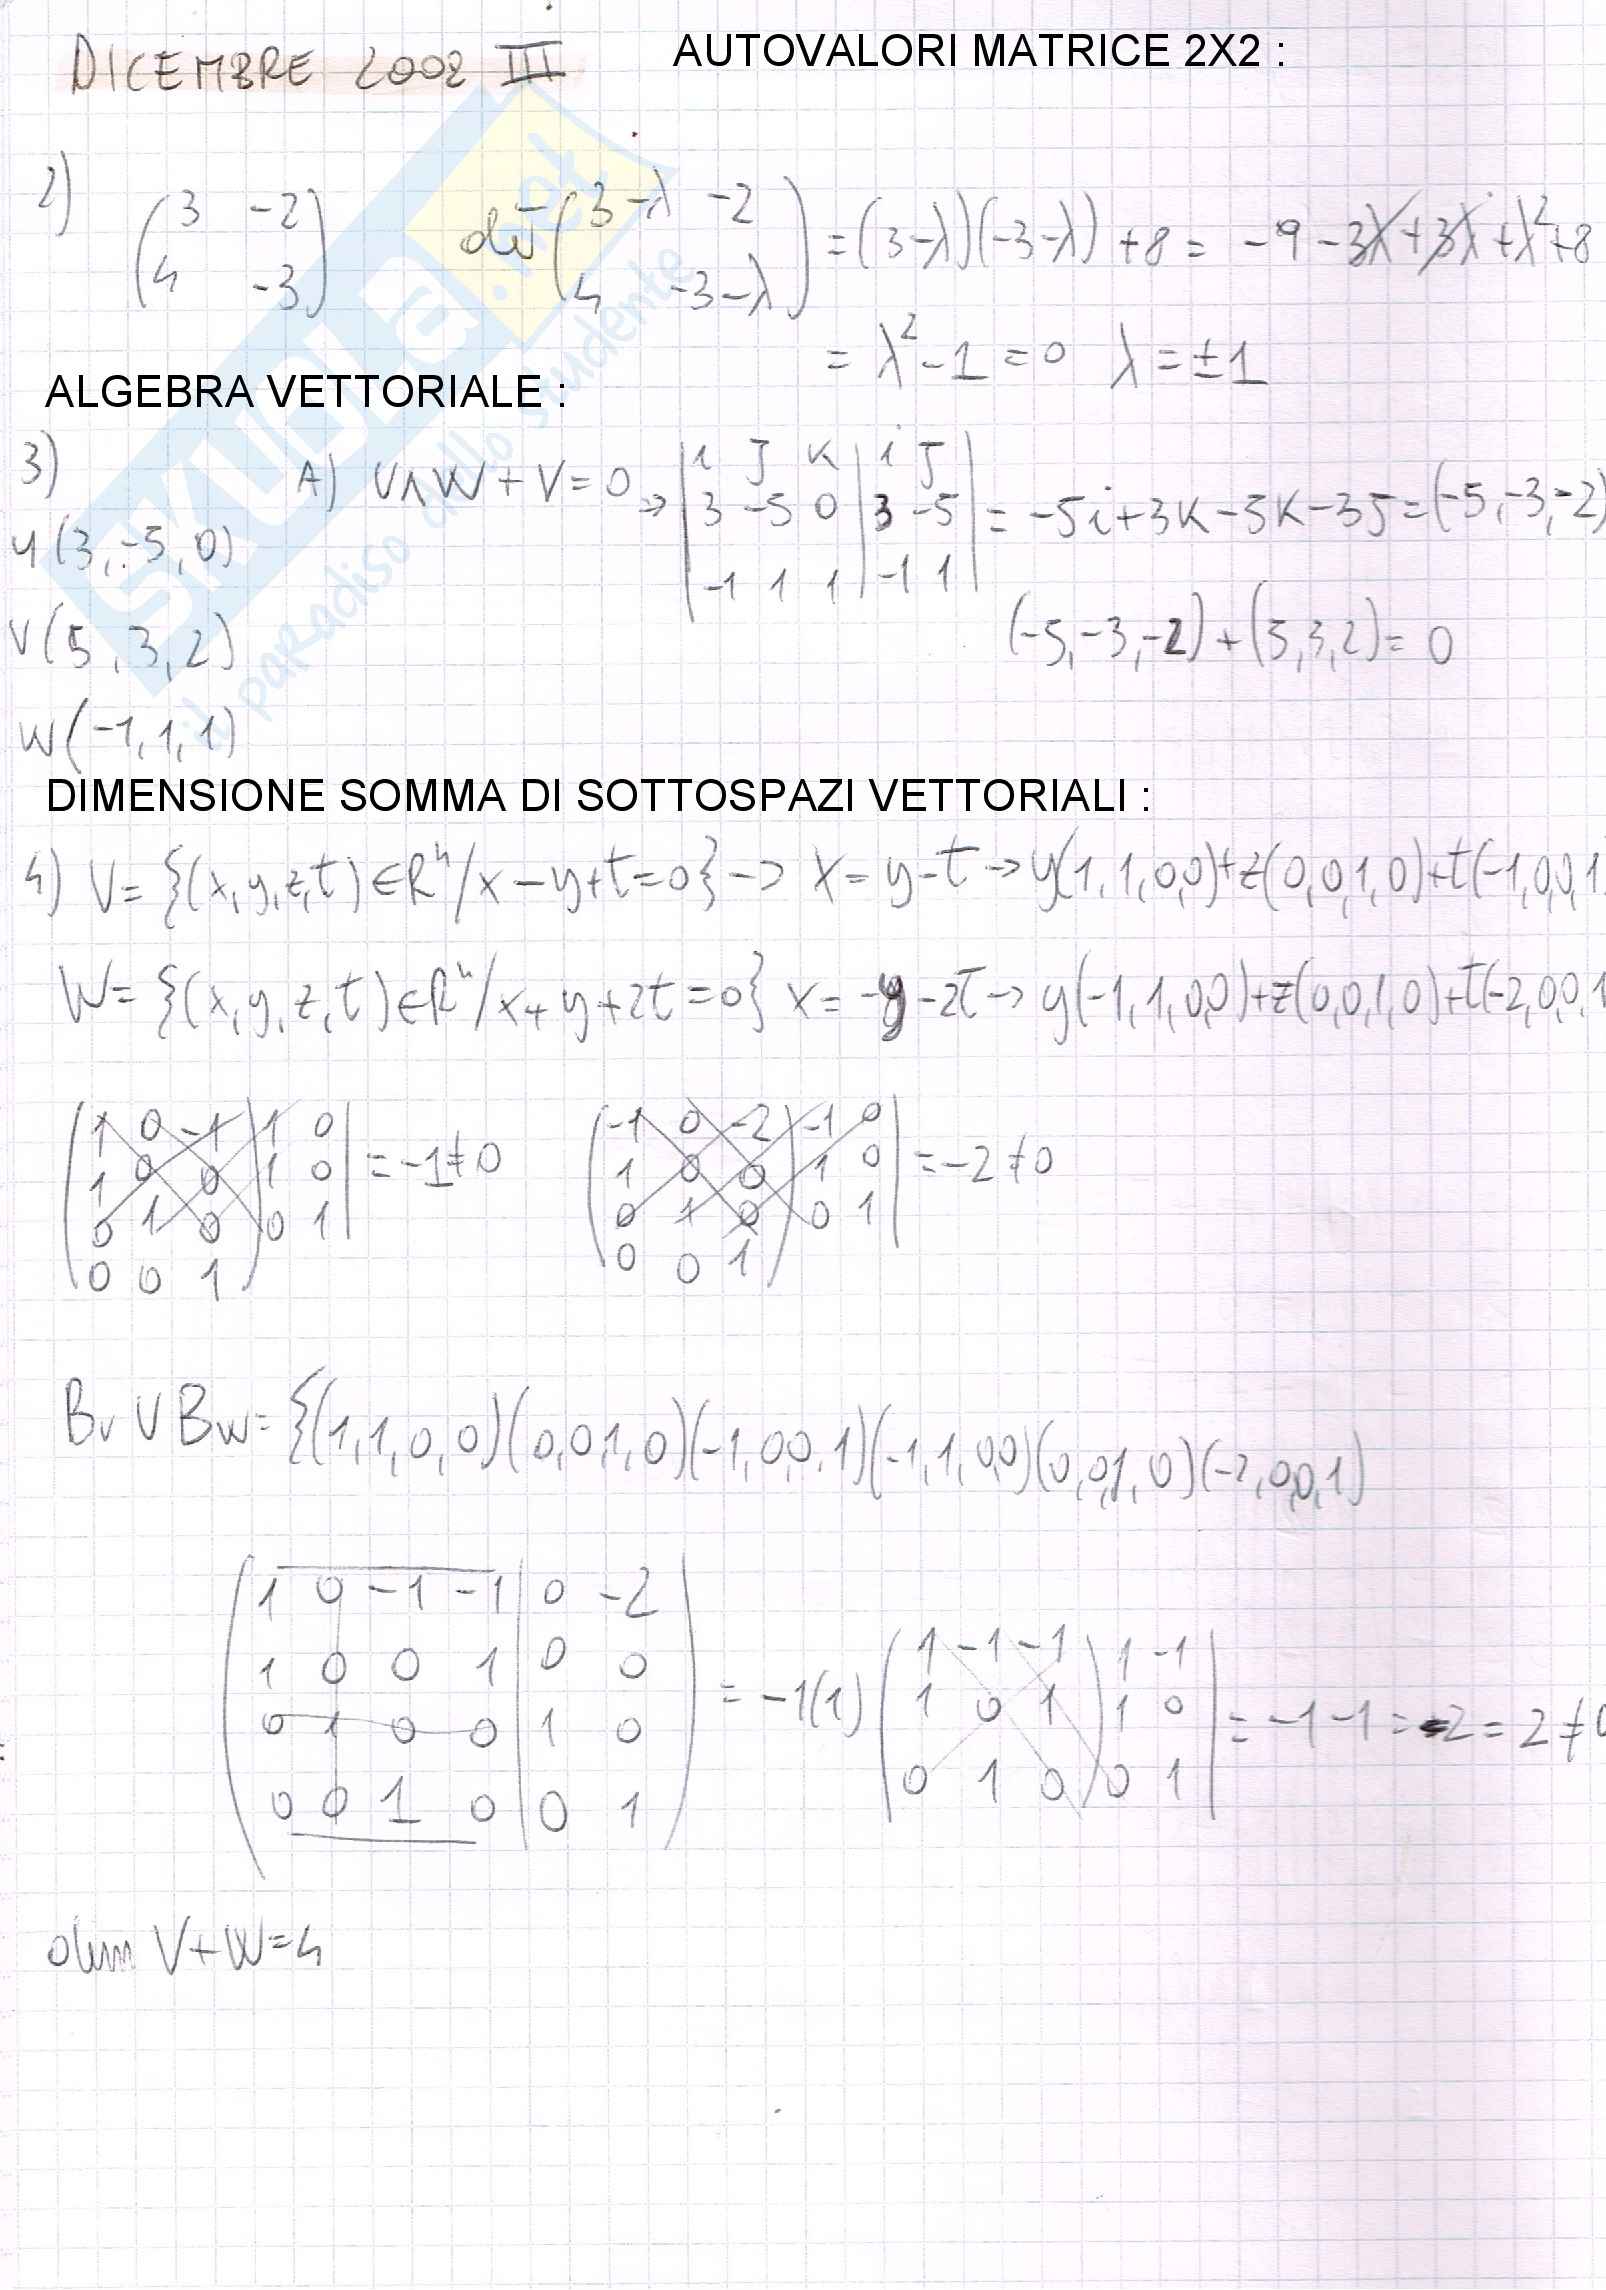 DICEMBRE 2002 III
AUTOVALORI MATRICE 2X2 :
2) (3 -2 / 4 -3) det (3-λ -2 / 4 -3-λ) = (3-λ)(-3-λ) +8 = -9 -3λ +3λ +λ² +8
= λ² - 1 = 0 λ = ±1
ALGEBRA VETTORIALE :
3) A) U∧W + V = 0 → | i j k | i j | 3 -5 0 | 3 -5 | -1 1 1 | -1 1 | = -5i+3k-5k-3j = (-5,-3,-2)
U(3,-5,0)
V(5,3,2) (-5,-3,-2)+(5,3,2)= 0
W(-1,1,1)
DIMENSIONE SOMMA DI SOTTOSPAZI VETTORIALI :
4) V= {(x,y,z,t) ∈ R⁴ / x-y+t=0} -> x = y-t -> y(1,1,0,0)+z(0,0,1,0)+t(-1,0,0,1
W= {(x,y,z,t) ∈ R⁴ / x+y+2t=0} x = -y-2t -> y(-1,1,0,0)+z(0,0,1,0)+t(-2,0,0,1
1 0 -1 1 0 -1 0 -2 -1 0
1 0 0 1 0 = -1≠0 1 0 0 1 0 = -2≠0
0 1 0 0 1 0 1 0 0 1
0 0 1 0 0 1
Bv U Bw= {(1,1,0,0)(0,0,1,0)(-1,0,0,1)(-1,1,0,0)(0,0,1,0)(-2,0,0,1)
1 0 -1 -1 0 -2
1 0 0 1 0 0 1 -1 -1 1 -1
0 1 0 0 1 0 = -1(1) 1 0 1 1 0 = -1-1= -2 = 2 ≠0
0 0 1 0 0 1 0 1 0 0 1
dim V+W=4
SKUOLA.net
il paradiso dello studente